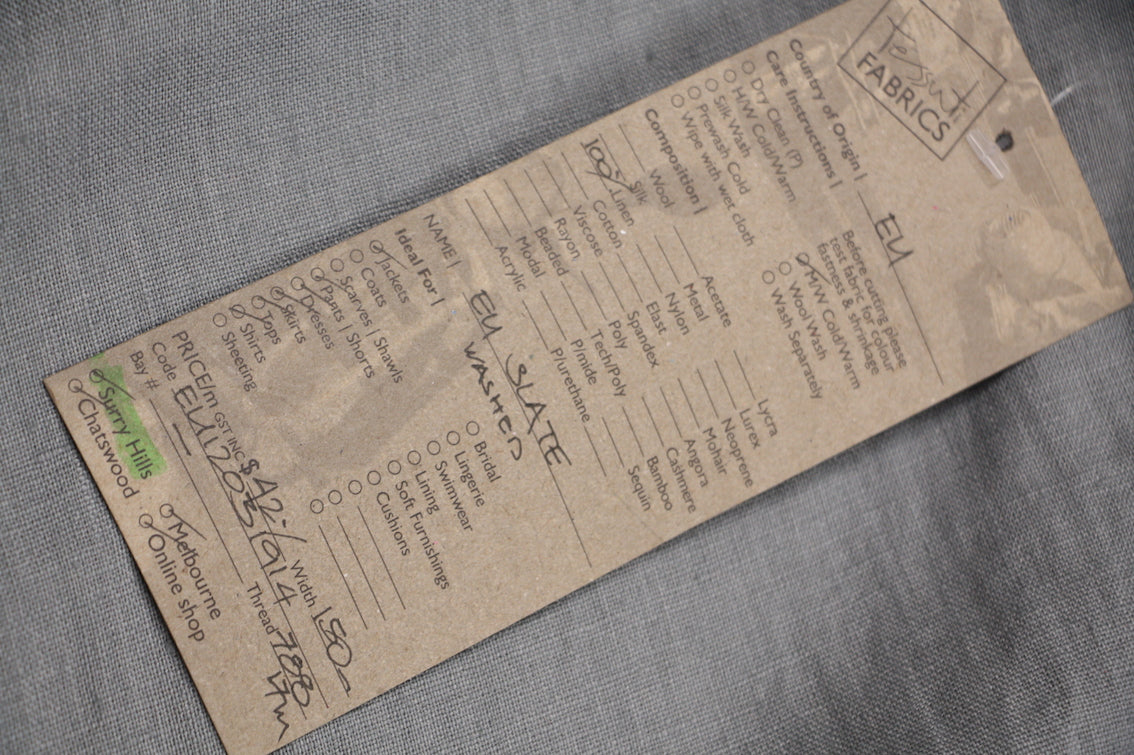 tessuti
FABRICS
Country of Origin | EU
Care Instructions | Before cutting please
test fabric for colour
fastness & shrinkage
Dry Clean (P)
H/W Cold/Warm
Silk Wash
Prewash Cold
Wipe with wer cloth
M/W Cold/Warm
Wool Wash
Wash Separately
Composition |
Wool
Silk
100% Linen
Cotton
Viscose
Rayon
Beaded
Modal
Acrylic
Acetate
Metal
Nylon
Elast
Spandex
Poly
Tech/Poly
P/mide
P/urethane
Lycra
Lurex
Neoprene
Mohair
Angora
Cashmere
Bamboo
Sequin
NAME | EU SLATE
WASHED
Ideal For |
Jackets
Coats
Scarves | Shawls
Pants | Shorts
Dresses
Skirts
Tops
Shirts
Sheeting
Bridal
Lingerie
Swimwear
Lining
Soft Furnishings
Cushions
PRICE/m GST INC $42 Width 150
Code Thread
Bay #
Surry Hills
Chatswood
Melbourne
Online shop